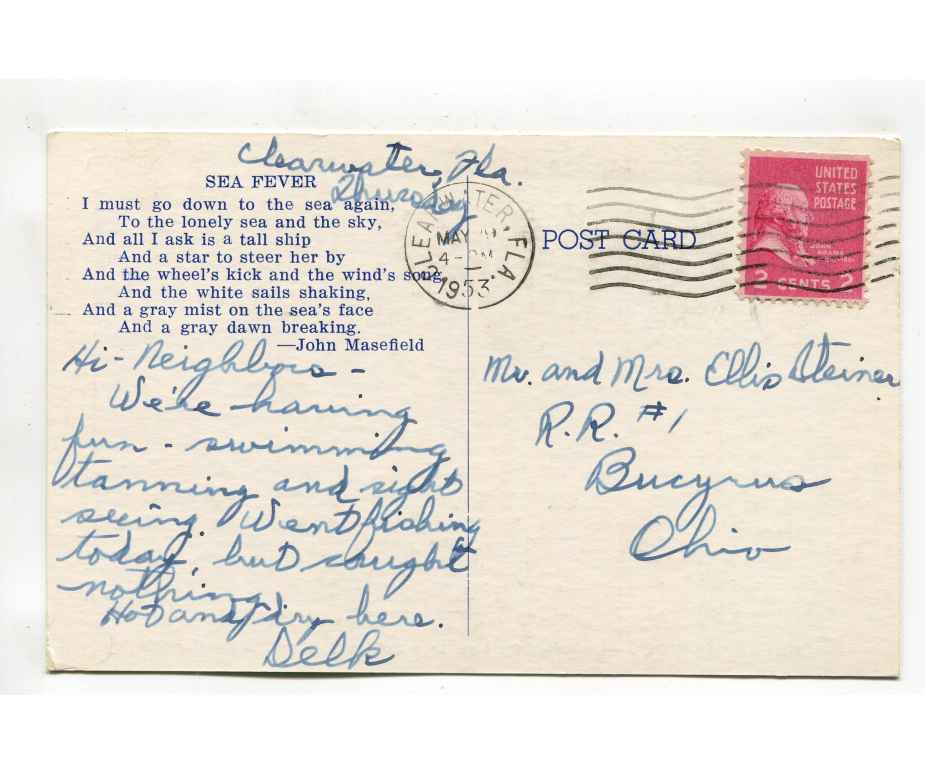 Clearwater, Fla.
Thursday
SEA FEVER
I must go down to the sea again,
To the lonely sea and the sky,
And all I ask is a tall ship
And a star to steer her by
And the wheel's kick and the wind's song,
And the white sails shaking,
And a gray mist on the sea's face
And a gray dawn breaking.
—John Masefield
Hi- Neighbors -
We're having
fun - swimming
tanning and sight
seeing. Went fishing
today, but caught
nothing.
Hot and dry here.
Delk
CLEARWATER, FLA.
MAY
4-PM
1953
POST CARD
UNITED
STATES
POSTAGE
JOHN
ADAMS
2 CENTS 2
Mr. and Mrs. Ellis Steiner
R.R. #1
Bucyrus
Ohio